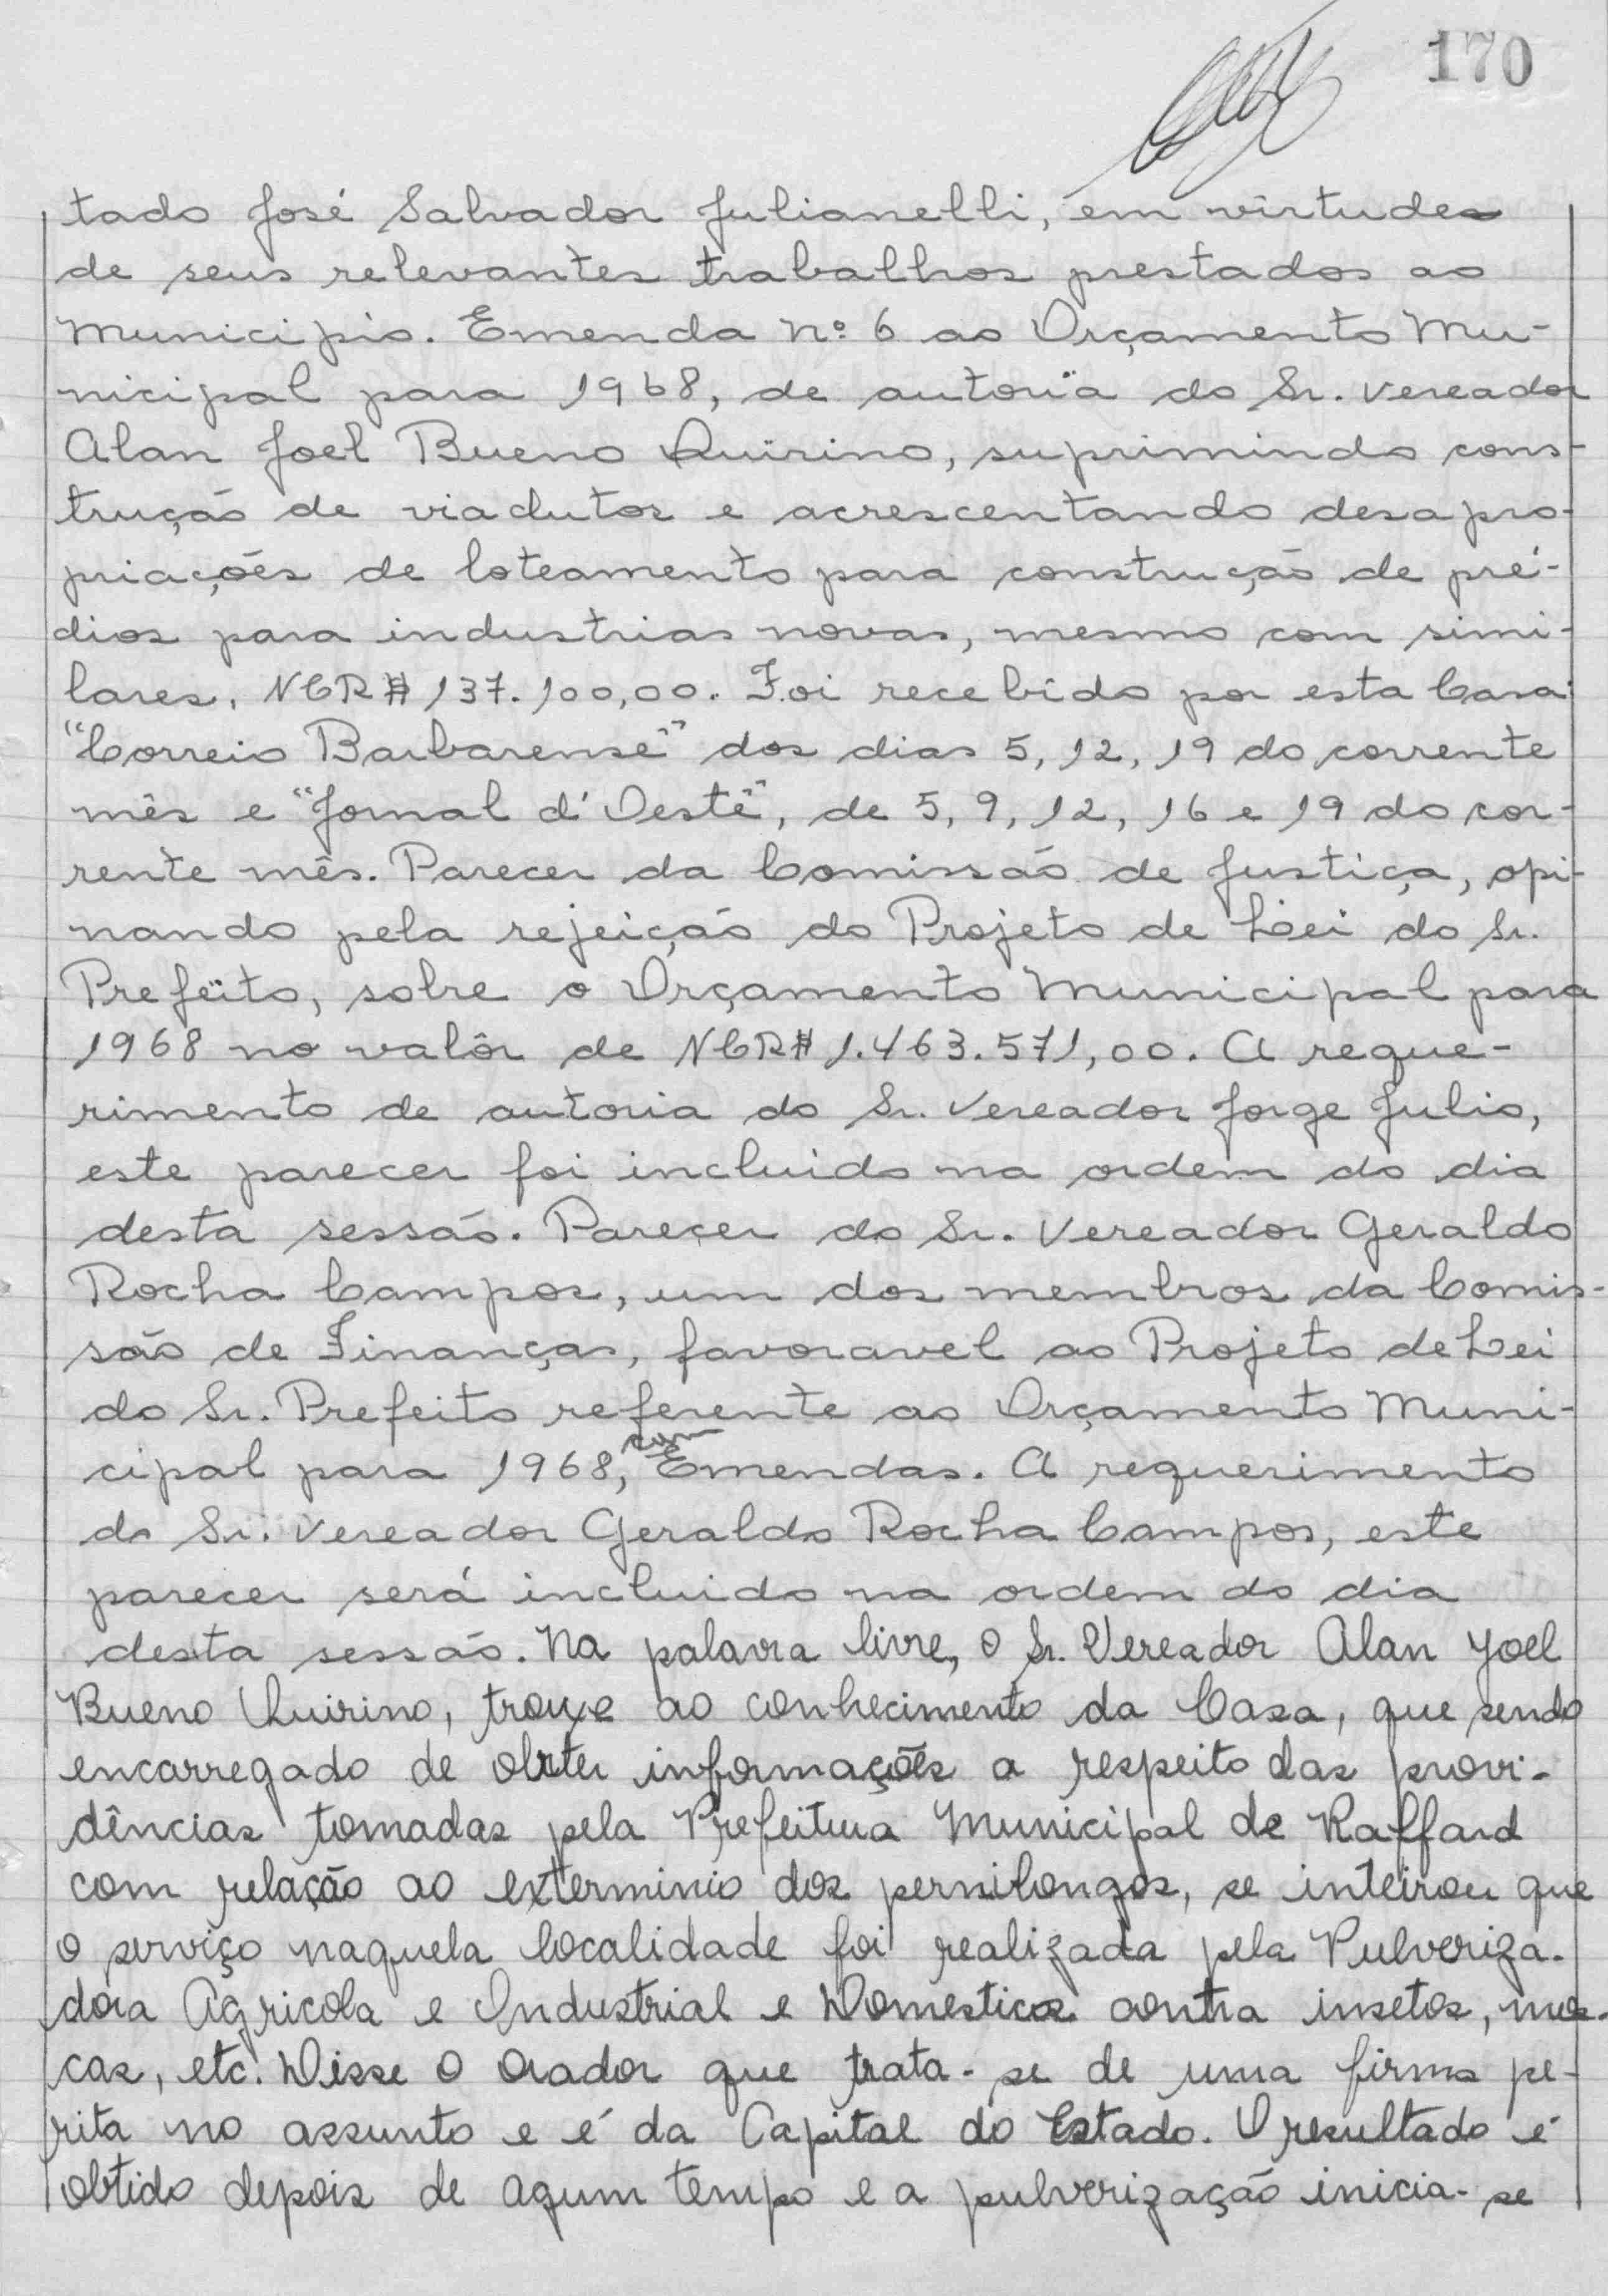 170
tado José Salvador Julianelli, em virtudes
de seus relevantes trabalhos prestados ao
Municipio. Emenda nº 6 ao Orçamento Mu-
nicipal para 1968, de autoria do Sr. Vereador
Alan Joel Bueno Quirino, suprimindo cons-
trução de viadutos e acrescentando desapro-
priações de loteamento para construção de pré-
dios para industrias novas, mesmo com simi-
lares, NCR$ 137.100,00. Foi recebido por esta Casa:
"Correio Barbarense" dos dias 5, 12, 19 do corrente
mês e "Jornal d'Oeste", de 5, 9, 12, 16 e 19 do cor-
rente mês. Parecer da Comissão de Justiça, opi-
nando pela rejeição do Projeto de Lei do Sr.
Prefeito, sobre o Orçamento Municipal para
1968 no valôr de NCR$ 1.463.571,00. A reque-
rimento de autoria do Sr. Vereador Jorge Julio,
este parecer foi incluido na ordem do dia
desta sessão. Pareçer do Sr. Vereador Geraldo
Rocha Campos, um dos membros da Comis-
são de Finanças, favoravel ao Projeto de Lei
do Sr. Prefeito referente ao Orçamento Muni-
cipal para 1968, com Emendas. A requerimento
do Sr. Vereador Geraldo Rocha Campos, este
parecer será incluido na ordem do dia
desta sessão. Na palavra livre, o Sr. Vereador Alan Yoel
Bueno Quirino, trouxe ao conhecimento da Casa, que sendo
encarregado de obter informações a respeito das provi-
dências tomadas pela Prefeitura Municipal de Raffard
com relação ao exterminio dos pernilongos, se inteirou que
o serviço naquela localidade foi realizada pela Pulveriza-
dora Agricola e Industrial e Domestica contra insetos, mos-
cas, etc. Disse o orador que trata-se de uma firma pe-
rita no assunto e é da Capital do Estado. O resultado é
obtido depois de agum tempo e a pulverização inicia-se